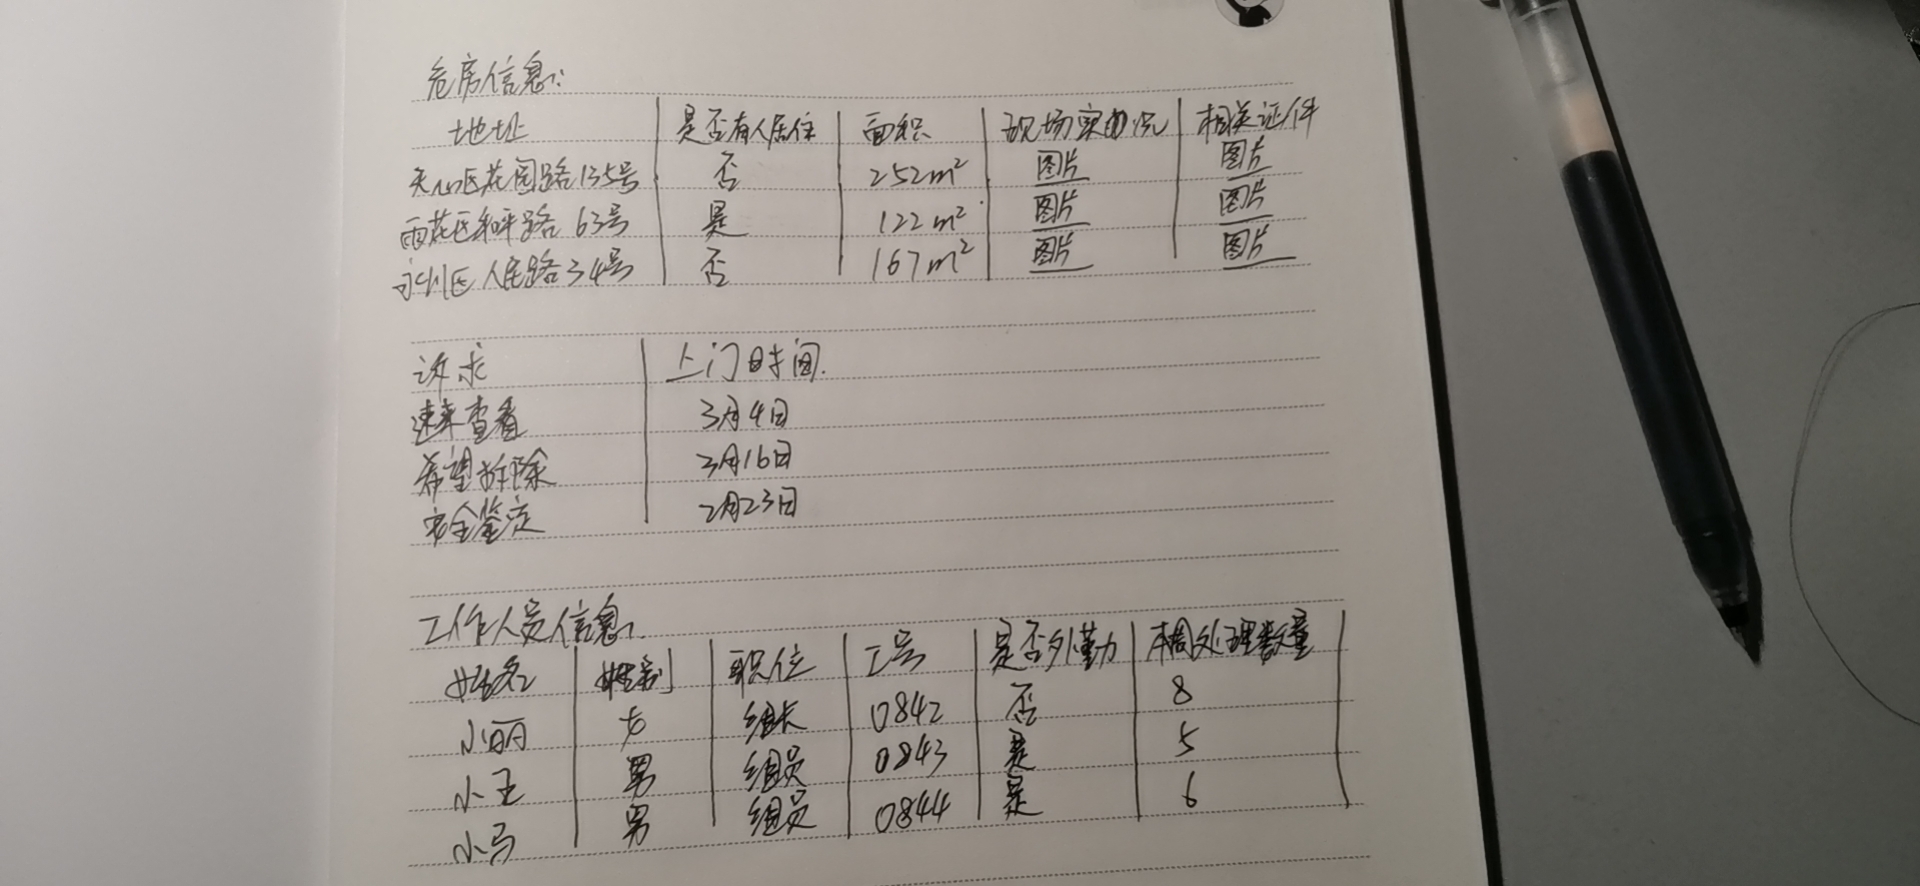 危房信息:
地址 是否有人居住 面积 现场实由况 相关证件
天心区花园路135号 否 252m² 图片 图片
雨花区和平路63号 是 122m² 图片 图片
永州区人民路34号 否 167m² 图片 图片
诉求 上门时间.
速来查看 3月4日
希望拆除 3月16日
安全鉴定 2月23日
工作人员信息:
姓名 性别 职位 工号 是否外勤 本周处理数量
小丽 女 组长 0842 否 8
小王 男 组员 0843 是 5
小马 男 组员 0844 是 6